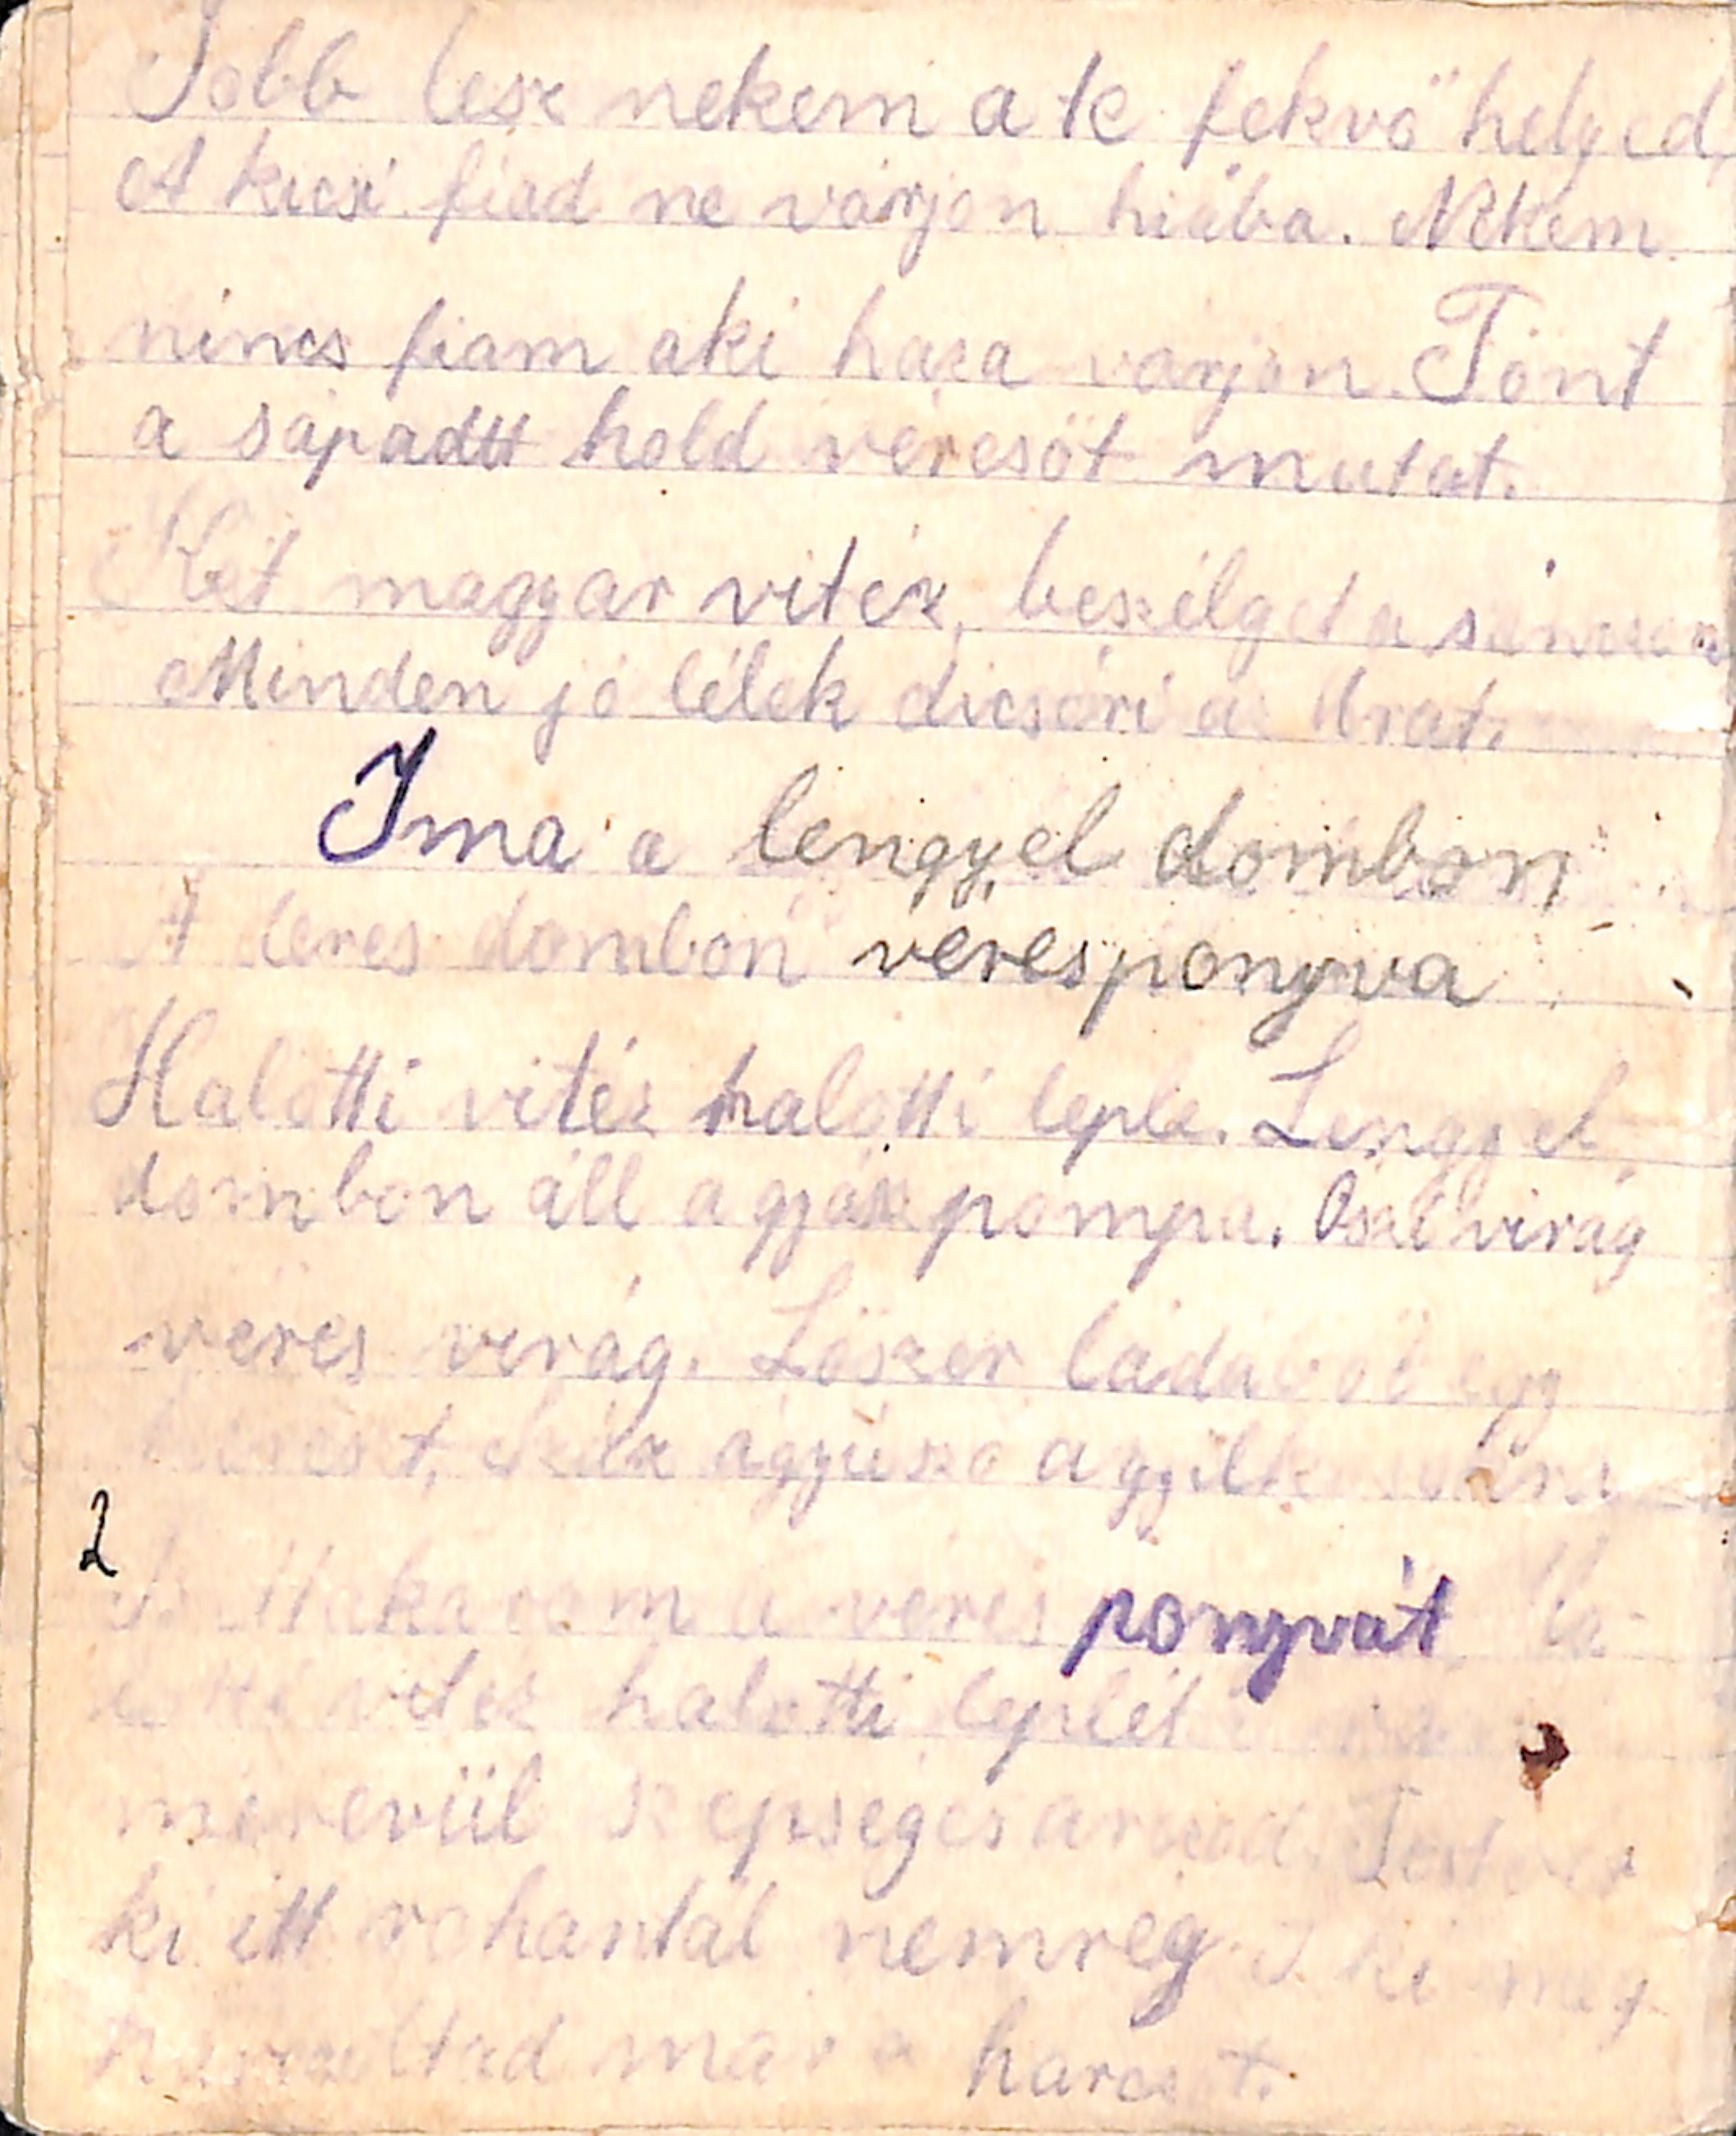 Jobb lesz nekem a te fekvö helyed,
A kicsi fiad ne várjon hiába. Nekem
nincs fiam aki haza varjon. Tönt
a sápadtt hold véresöt mutat.
Két magyar vitéz, beszélget a
Minden jó lélek dicséri az Urat.
Ima a lengyel dombon
A deres dombon véres ponyva
Halotti vitéz halotti leple. Lengyel
dombon áll a gyász pompa. Öszi virág
véres virág. Löszer ládából egy
ágyúszó a
2
a véres ponyvát
halotti leplét
szépséges arcod. Testvér
ki itt rohantál nemrég S ki meg
már a harcot.